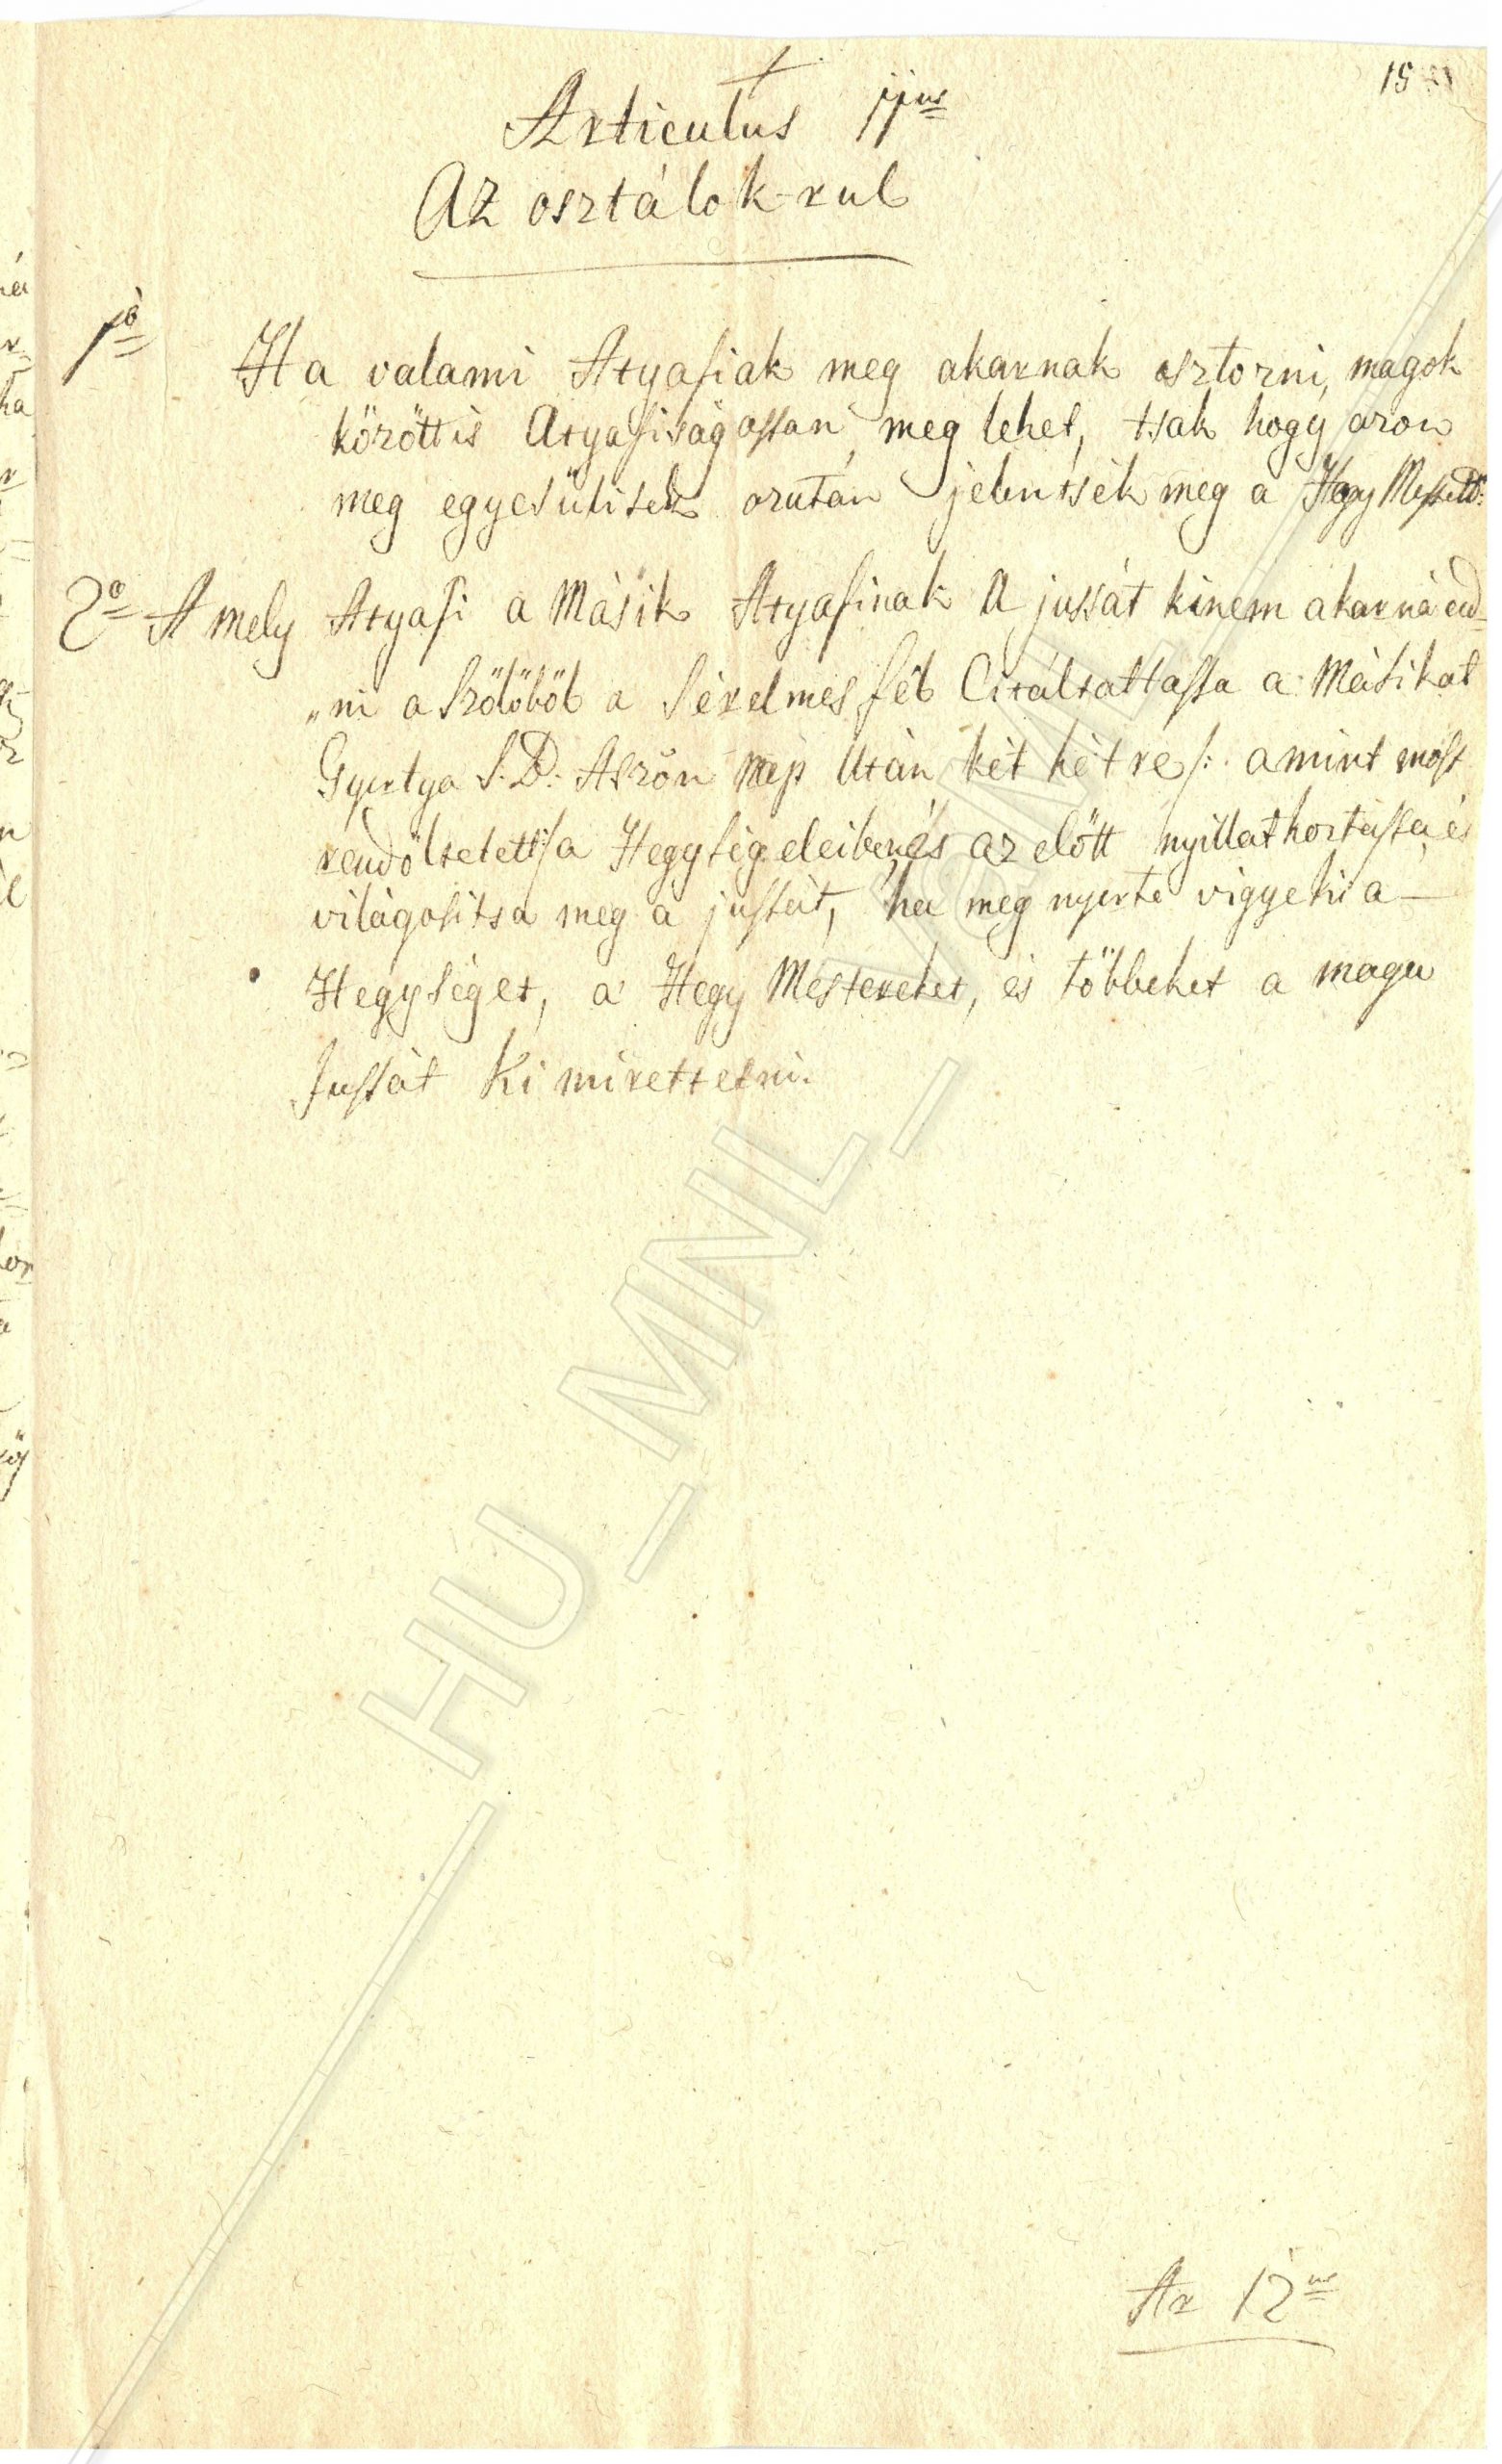 15
Articulus 11us
Az osztálok-rul
1o Ha valami Atyafiak meg akarnak osztozni, magok
közöttis Atyafiságossan, meg lehet, tsak hogy azon
meg egyesülisek azután jelentsék meg a Hegy
2o A mely Atyafi a Másik Atyafinak A jussát kinem akarná ad„
„ni a Szölöböl a Sérelmes fél Citáltattassa a Másikat
Gyertya S. B. Aszon nap Után két hétre /: amint most
rendöltetett :/ a Hegység eleiben, és az elött nyillatkoztassa, és
világositsa meg a jussát, ha meg nyerte vigye ki a
Hegységet, a Hegy Mestereket, és többeket a maga
Jussát Ki mirettetni.
Ar 12us
HU_MNL_VaML